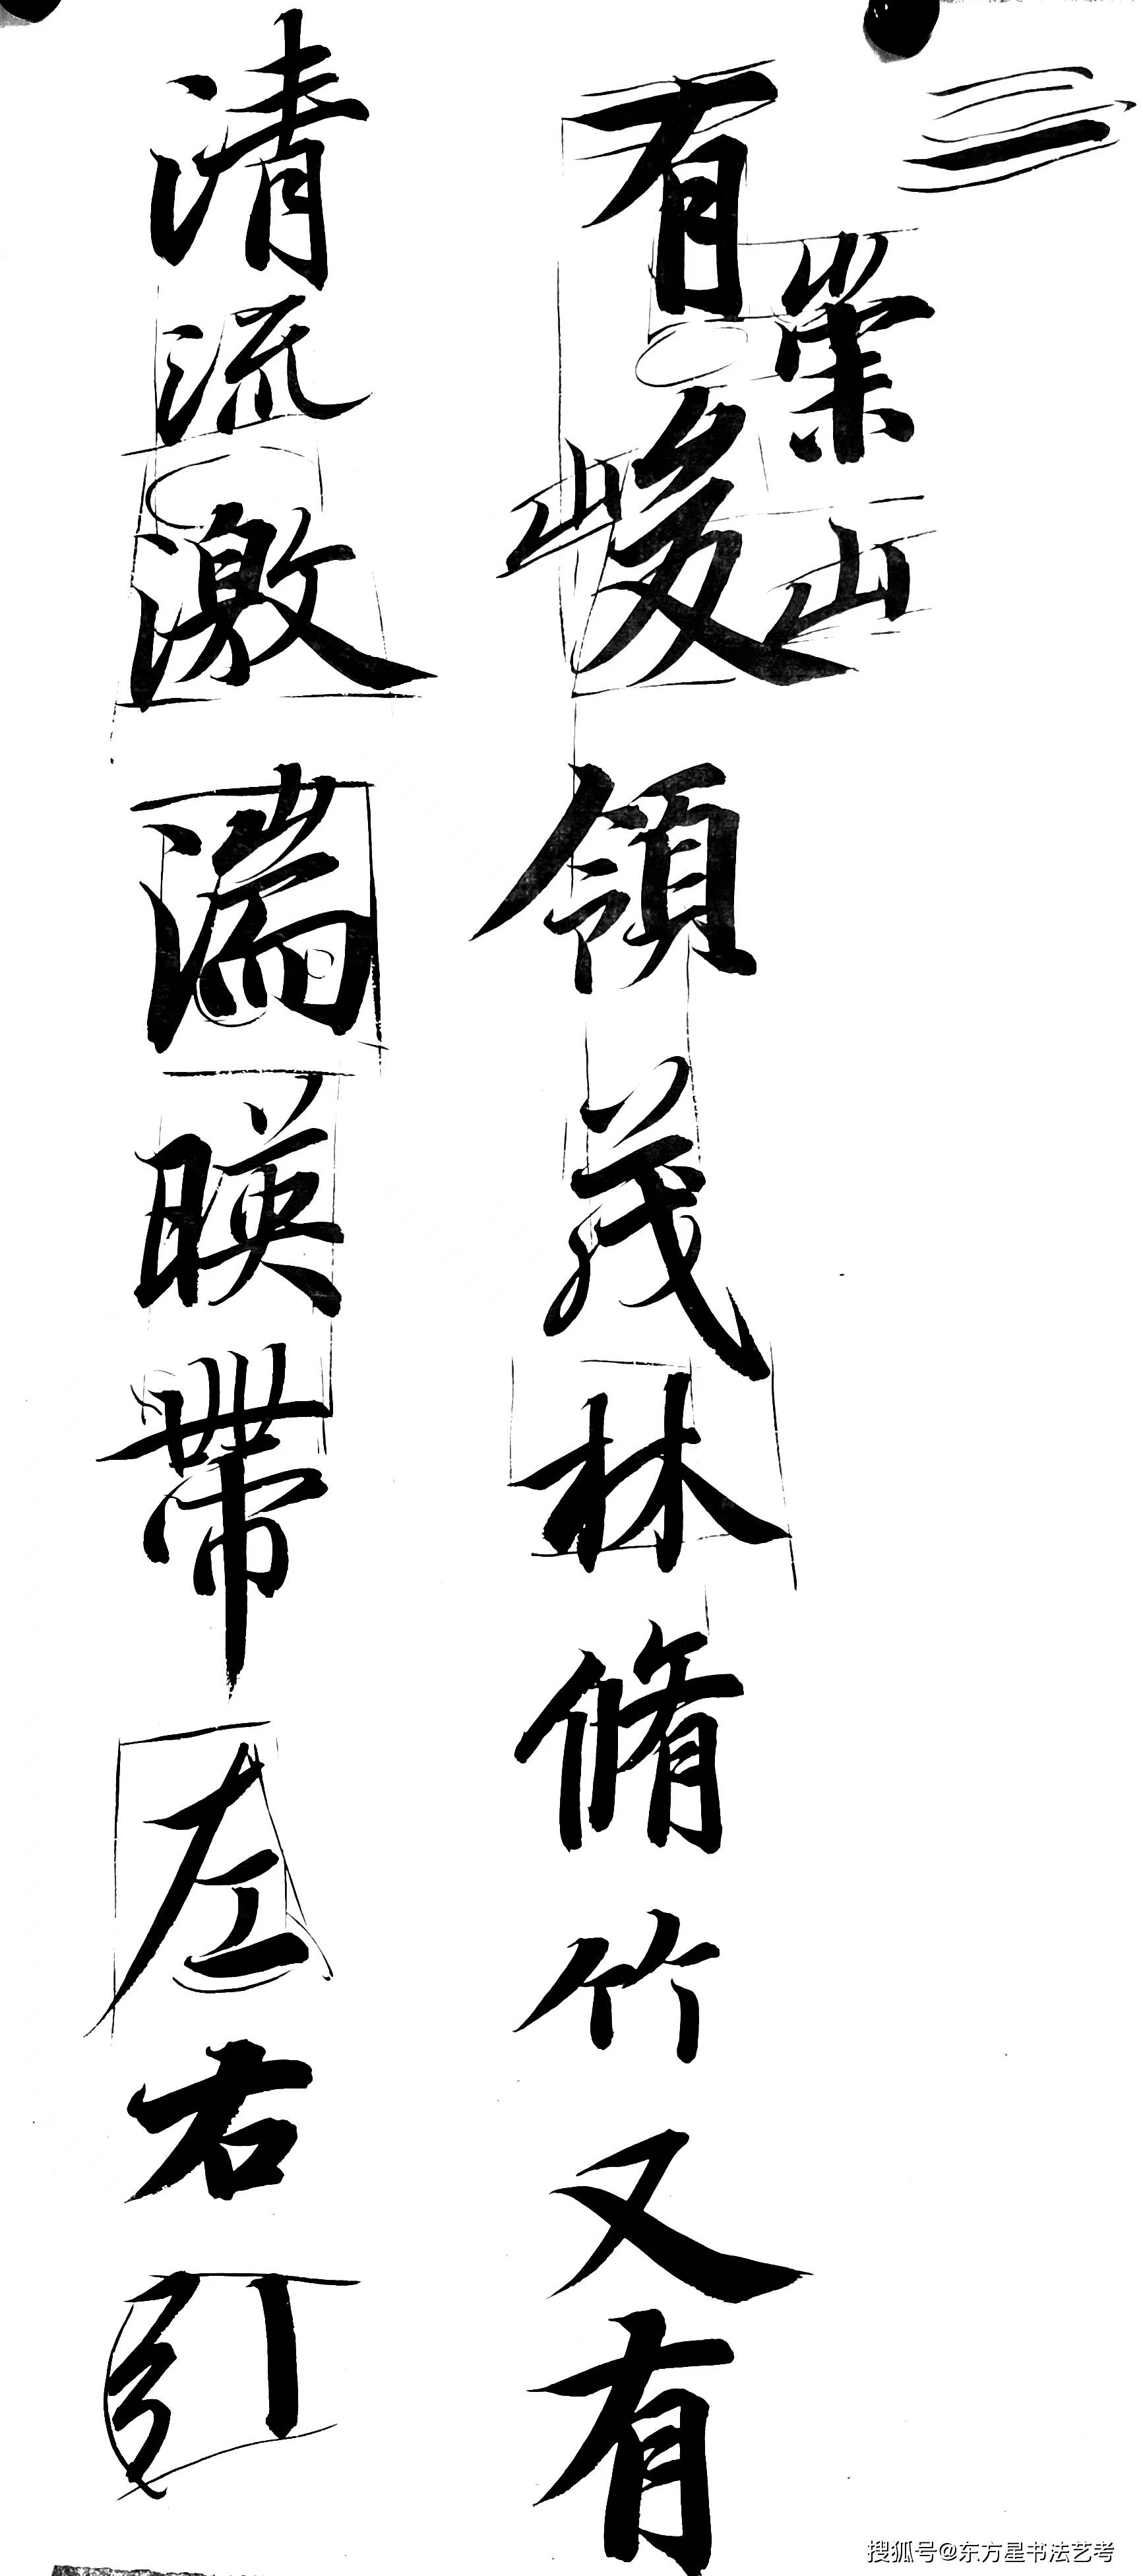 崇山
有峻領茂林脩竹又有
清流激湍暎帶左右引
搜狐号@东方星书法艺考